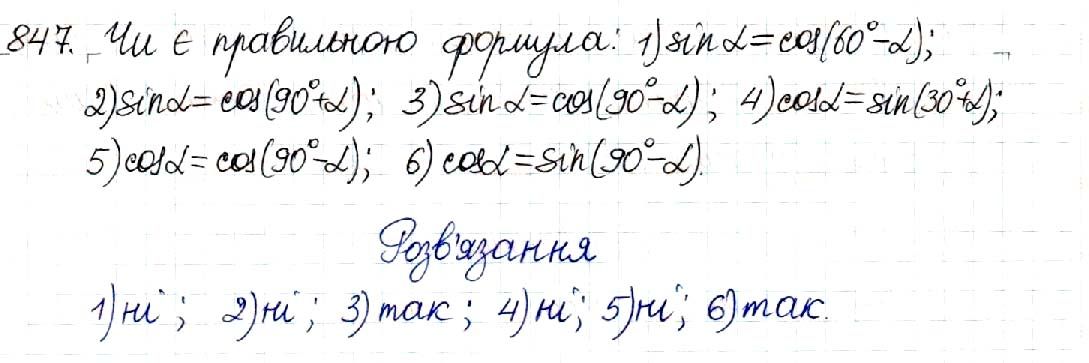 847. Чи є правильною формула: 1) sin α = cos(60° - α);
2) sin α = cos(90° + α); 3) sin α = cos(90° - α); 4) cos α = sin(30° + α);
5) cos α = cos(90° - α); 6) cos α = sin(90° - α).
Розв'язання
1) ні; 2) ні; 3) так; 4) ні; 5) ні; 6) так.